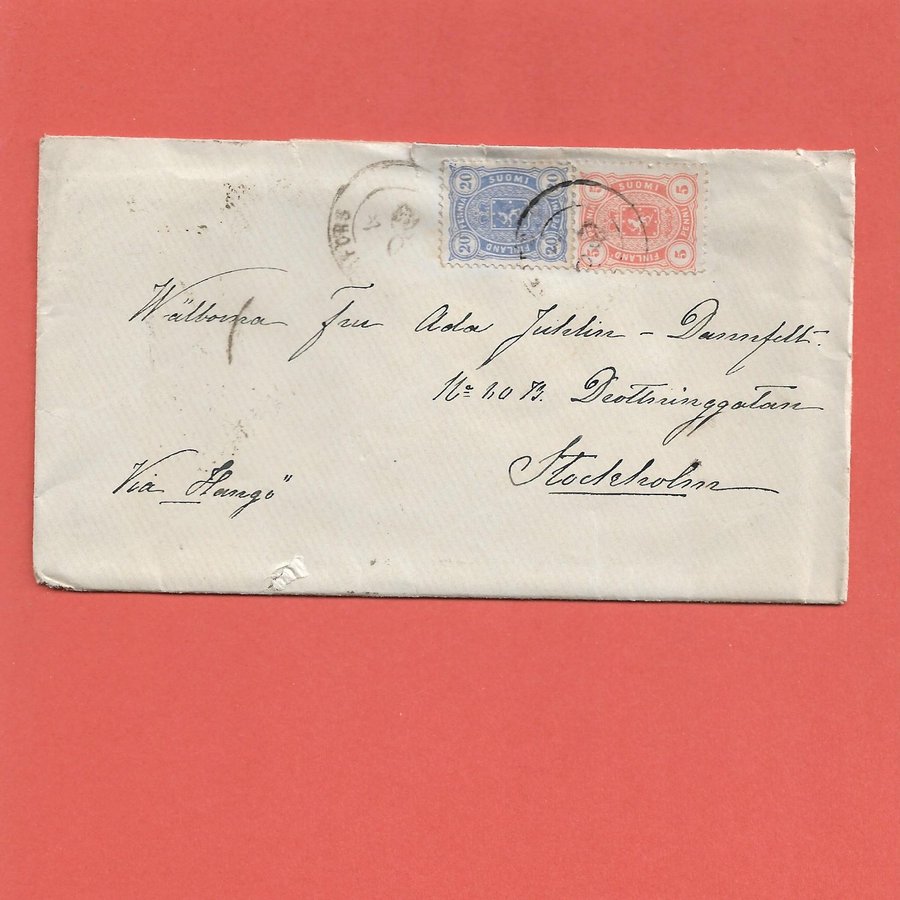 20 SUOMI 20
PENNIÄ PENNIÄ
20 FINLAND 20
5 SUOMI 5
PENNIÄ
5 FINLAND 5
Wälborna Fru Ada Juhlin-Dannfelt.
No 60 B. Drottninggatan
Stockholm
Via Hangö"